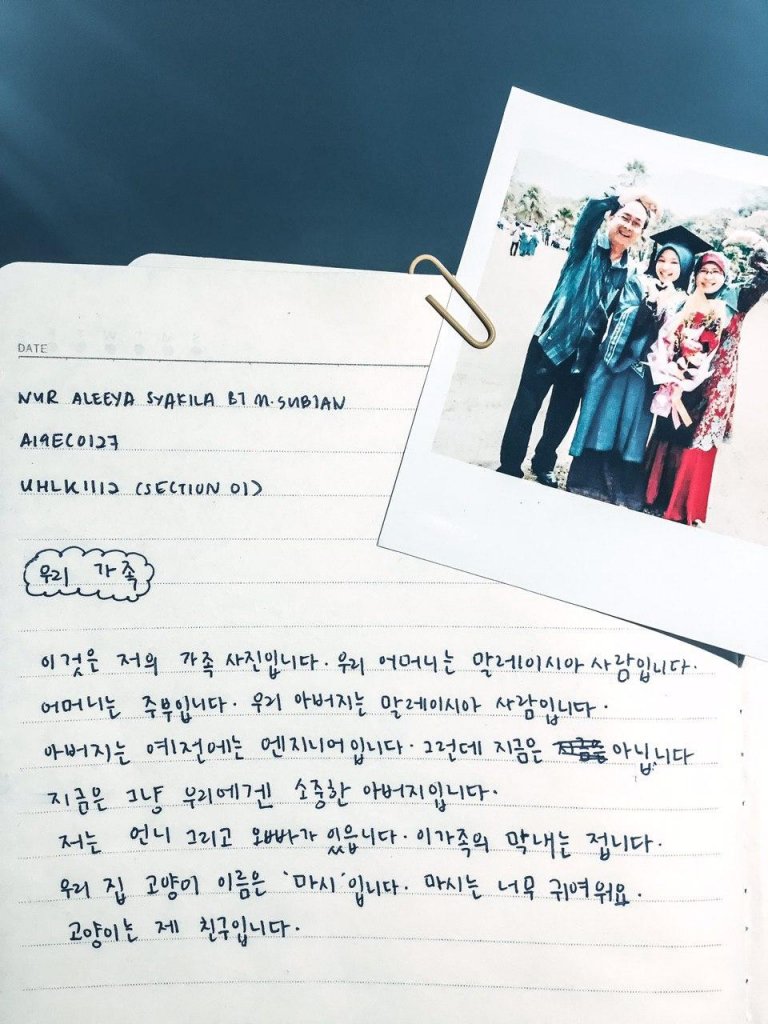 DATE
NUR ALEEYA SYAKILA BT M.SUBIAN
A19EC0127
UHLK1112 (SECTION 01)
우리 가족
이것은 저의 가족 사진입니다. 우리 어머니는 말레이시아 사람입니다.
어머니는 주부입니다. 우리 아버지는 말레이시아 사람입니다.
아버지는 예전에는 엔지니어입니다. 그런데 지금은 아닙니다
지금은 그냥 우리에겐 소중한 아버지입니다.
저는 언니 그리고 오빠가 있읍니다. 이가족의 막내는 접니다.
우리 집 고양이 이름은 '마시'입니다. 마시는 너무 귀여워요.
고양이는 제 친구입니다.